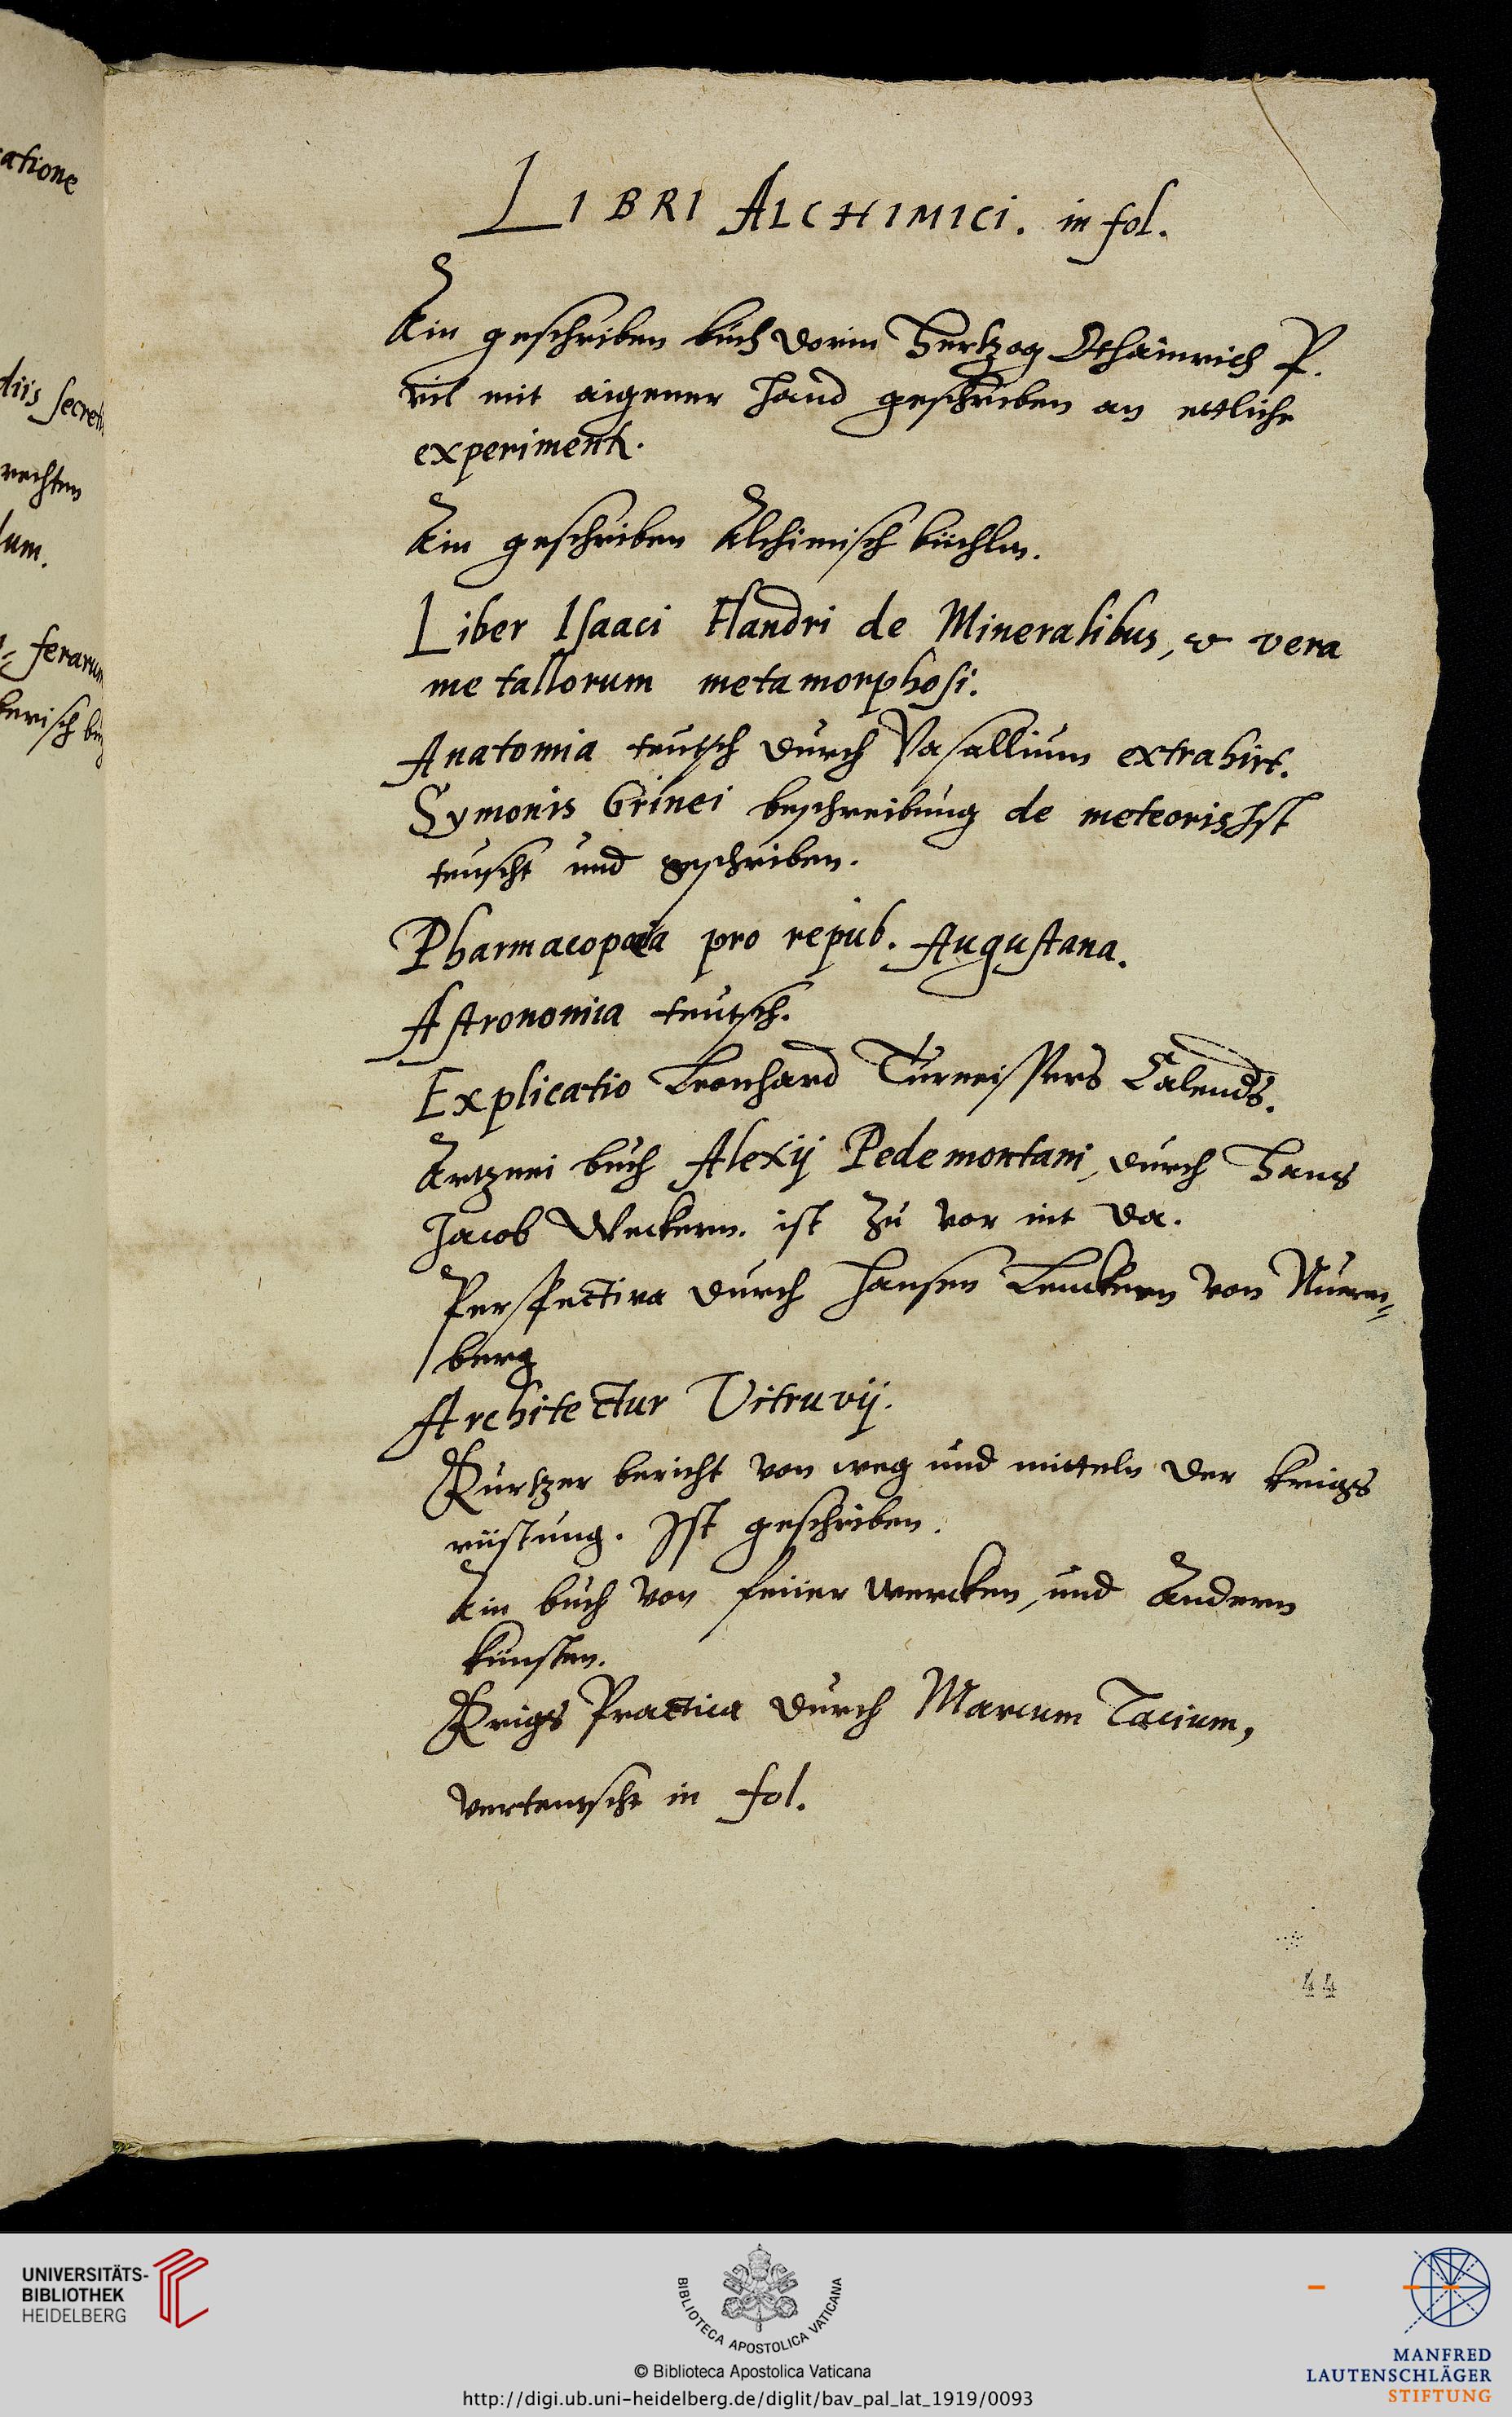 atione
diis secret
rechten
lum.
ferarum
kerisch bü
LIBRI ALCHIMICI. in fol.
Ain geschriben buch dorin Hertzog Othainrich P.
vil mit aigener hand geschriben an ettliche
experiment.
Ain geschriben Alchimisch büchlin.
Liber Isaaci Flandri de Mineralibus, & vera
metallorum metamorphosi.
Anatomia teutsch durch Vasallium extrahirt.
Symonis Grinei beschreibung de meteoris Ist
teuscht und geschriben.
Pharmacopoeia pro repub. Augustana.
Astronomia teutsch.
Explicatio Leonhard Turneissers Calend.
Artznei buch Alexij Pedemontani, durch Hans
Jacob Weckern. ist zu vor nit da.
Perspectiva durch Hansen Lenckern von Nuern=
berg
Architectur Vitruvij.
Kurtzer bericht von weg und mitteln der kriegs
rüstung. Ist geschriben.
Ain buch von feüer wercken, und Andern
künsten.
Krigs Practica durch Marcum Tacium,
verteutscht in fol.
44
UNIVERSITÄTS-
BIBLIOTHEK
HEIDELBERG
BIBLIOTECA APOSTOLICA VATICANA
© Biblioteca Apostolica Vaticana
http://digi.ub.uni-heidelberg.de/diglit/bav_pal_lat_1919/0093
MANFRED
LAUTENSCHLÄGER
STIFTUNG